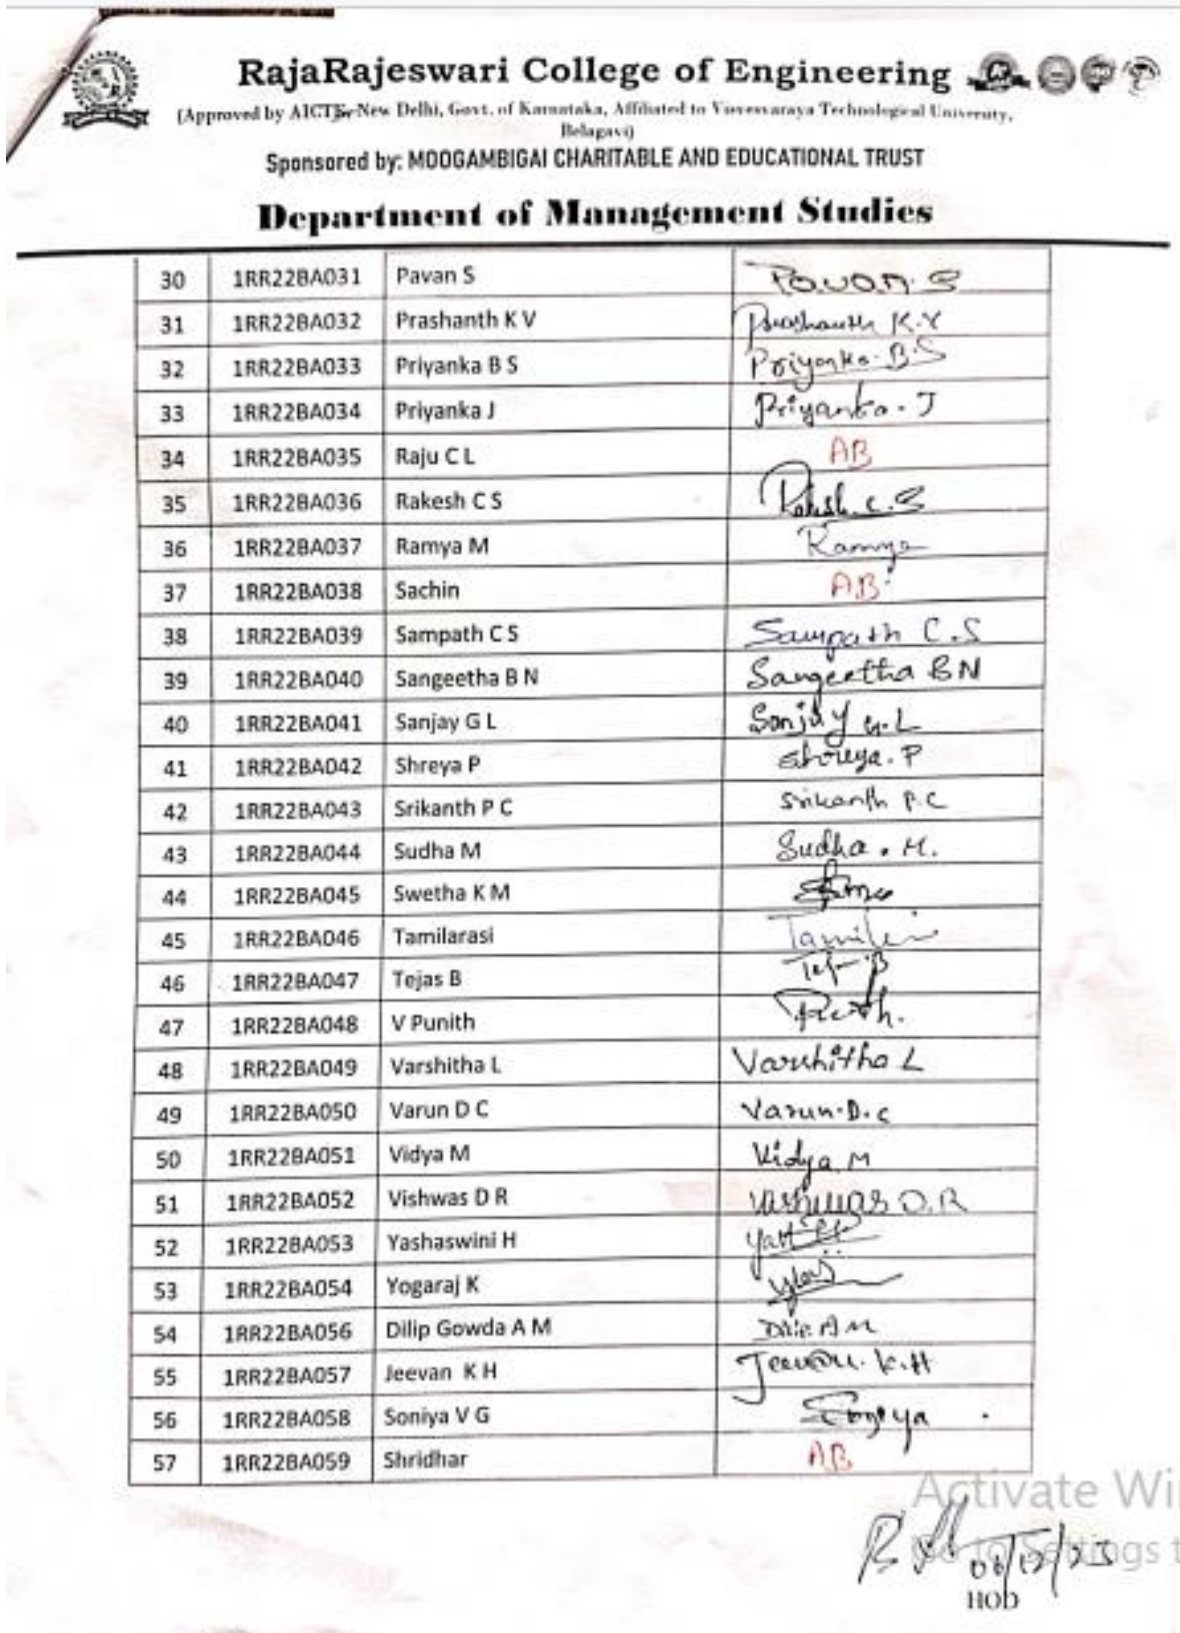 RajaRajeswari College of Engineering
(Approved by AICTE, New Delhi, Govt. of Karnataka, Affiliated to Visvesvaraya Technological University,
Belagavi)
Sponsored by: MOOGAMBIGAI CHARITABLE AND EDUCATIONAL TRUST
Department of Management Studies
30 1RR22BA031 Pavan S Pavan. S
31 1RR22BA032 Prashanth K V Prashanth K.V
32 1RR22BA033 Priyanka B S Priyanka. B.S
33 1RR22BA034 Priyanka J Priyanka. J
34 1RR22BA035 Raju C L AB
35 1RR22BA036 Rakesh C S Rakesh. C. S
36 1RR22BA037 Ramya M Ramya
37 1RR22BA038 Sachin AB
38 1RR22BA039 Sampath C S Sampath C.S
39 1RR22BA040 Sangeetha B N Sangeetha BN
40 1RR22BA041 Sanjay G L Sanjay G.L
41 1RR22BA042 Shreya P Shreya. P
42 1RR22BA043 Srikanth P C Srikanth P.C
43 1RR22BA044 Sudha M Sudha . M.
44 1RR22BA045 Swetha K M
45 1RR22BA046 Tamilarasi
46 1RR22BA047 Tejas B
47 1RR22BA048 V Punith
48 1RR22BA049 Varshitha L Varshitha L
49 1RR22BA050 Varun D C Varun.D.C
50 1RR22BA051 Vidya M Vidya M
51 1RR22BA052 Vishwas D R Vishwas D.R
52 1RR22BA053 Yashaswini H
53 1RR22BA054 Yogaraj K
54 1RR22BA056 Dilip Gowda A M Dilip A M
55 1RR22BA057 Jeevan K H Jeevan. K.H
56 1RR22BA058 Soniya V G Soniya
57 1RR22BA059 Shridhar AB
Activate Wi
06/12/23
HOD